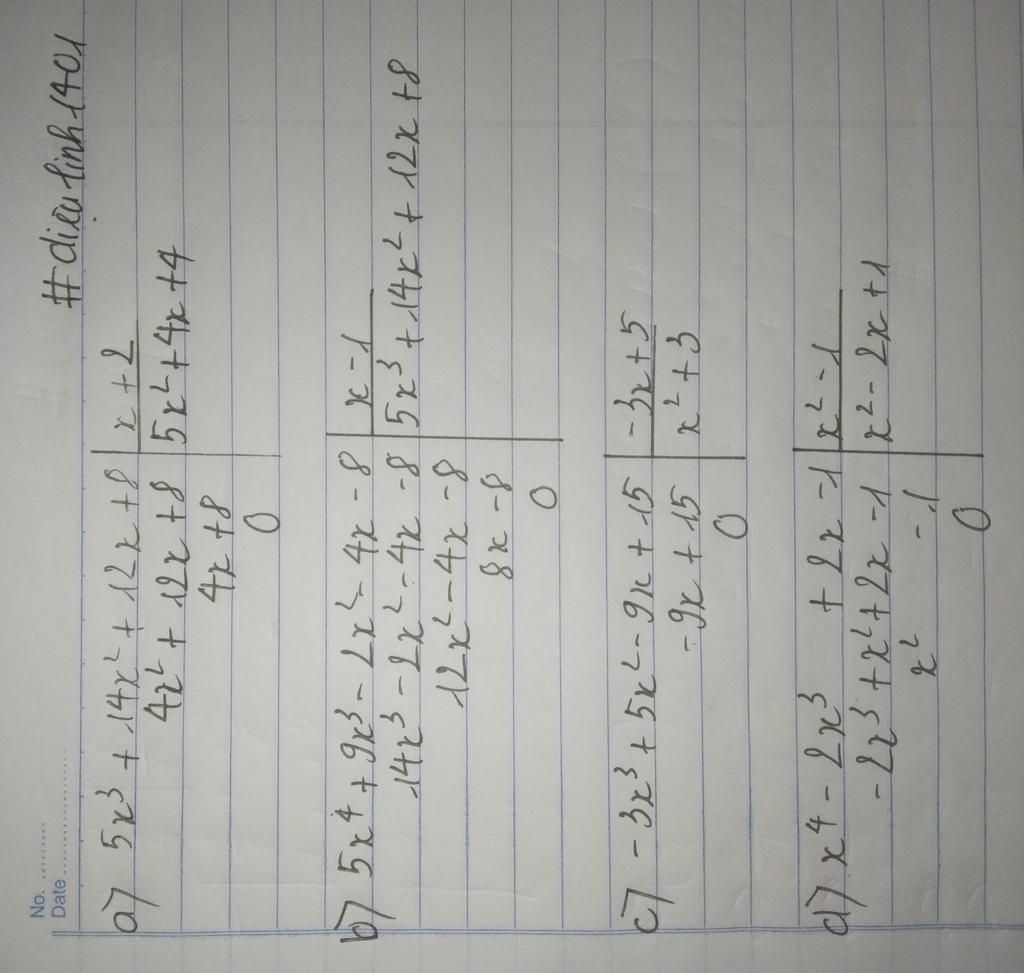 No. ..........
Date ......................
#diệulinh1401
a) 5x³ + 14x² + 12x + 8 | x + 2
4x² + 12x + 8 | 5x² + 4x + 4
4x + 8
0
b) 5x⁴ + 9x³ - 2x² - 4x - 8 | x - 1
14x³ - 2x² - 4x - 8 | 5x³ + 14x² + 12x + 8
12x² - 4x - 8
8x - 8
0
c) - 3x³ + 5x² - 9x + 15 | - 3x + 5
- 9x + 15 | x² + 3
0
d) x⁴ - 2x³ + 2x - 1 | x² - 1
- 2x³ + x² + 2x - 1 | x² - 2x + 1
x² - 1
0